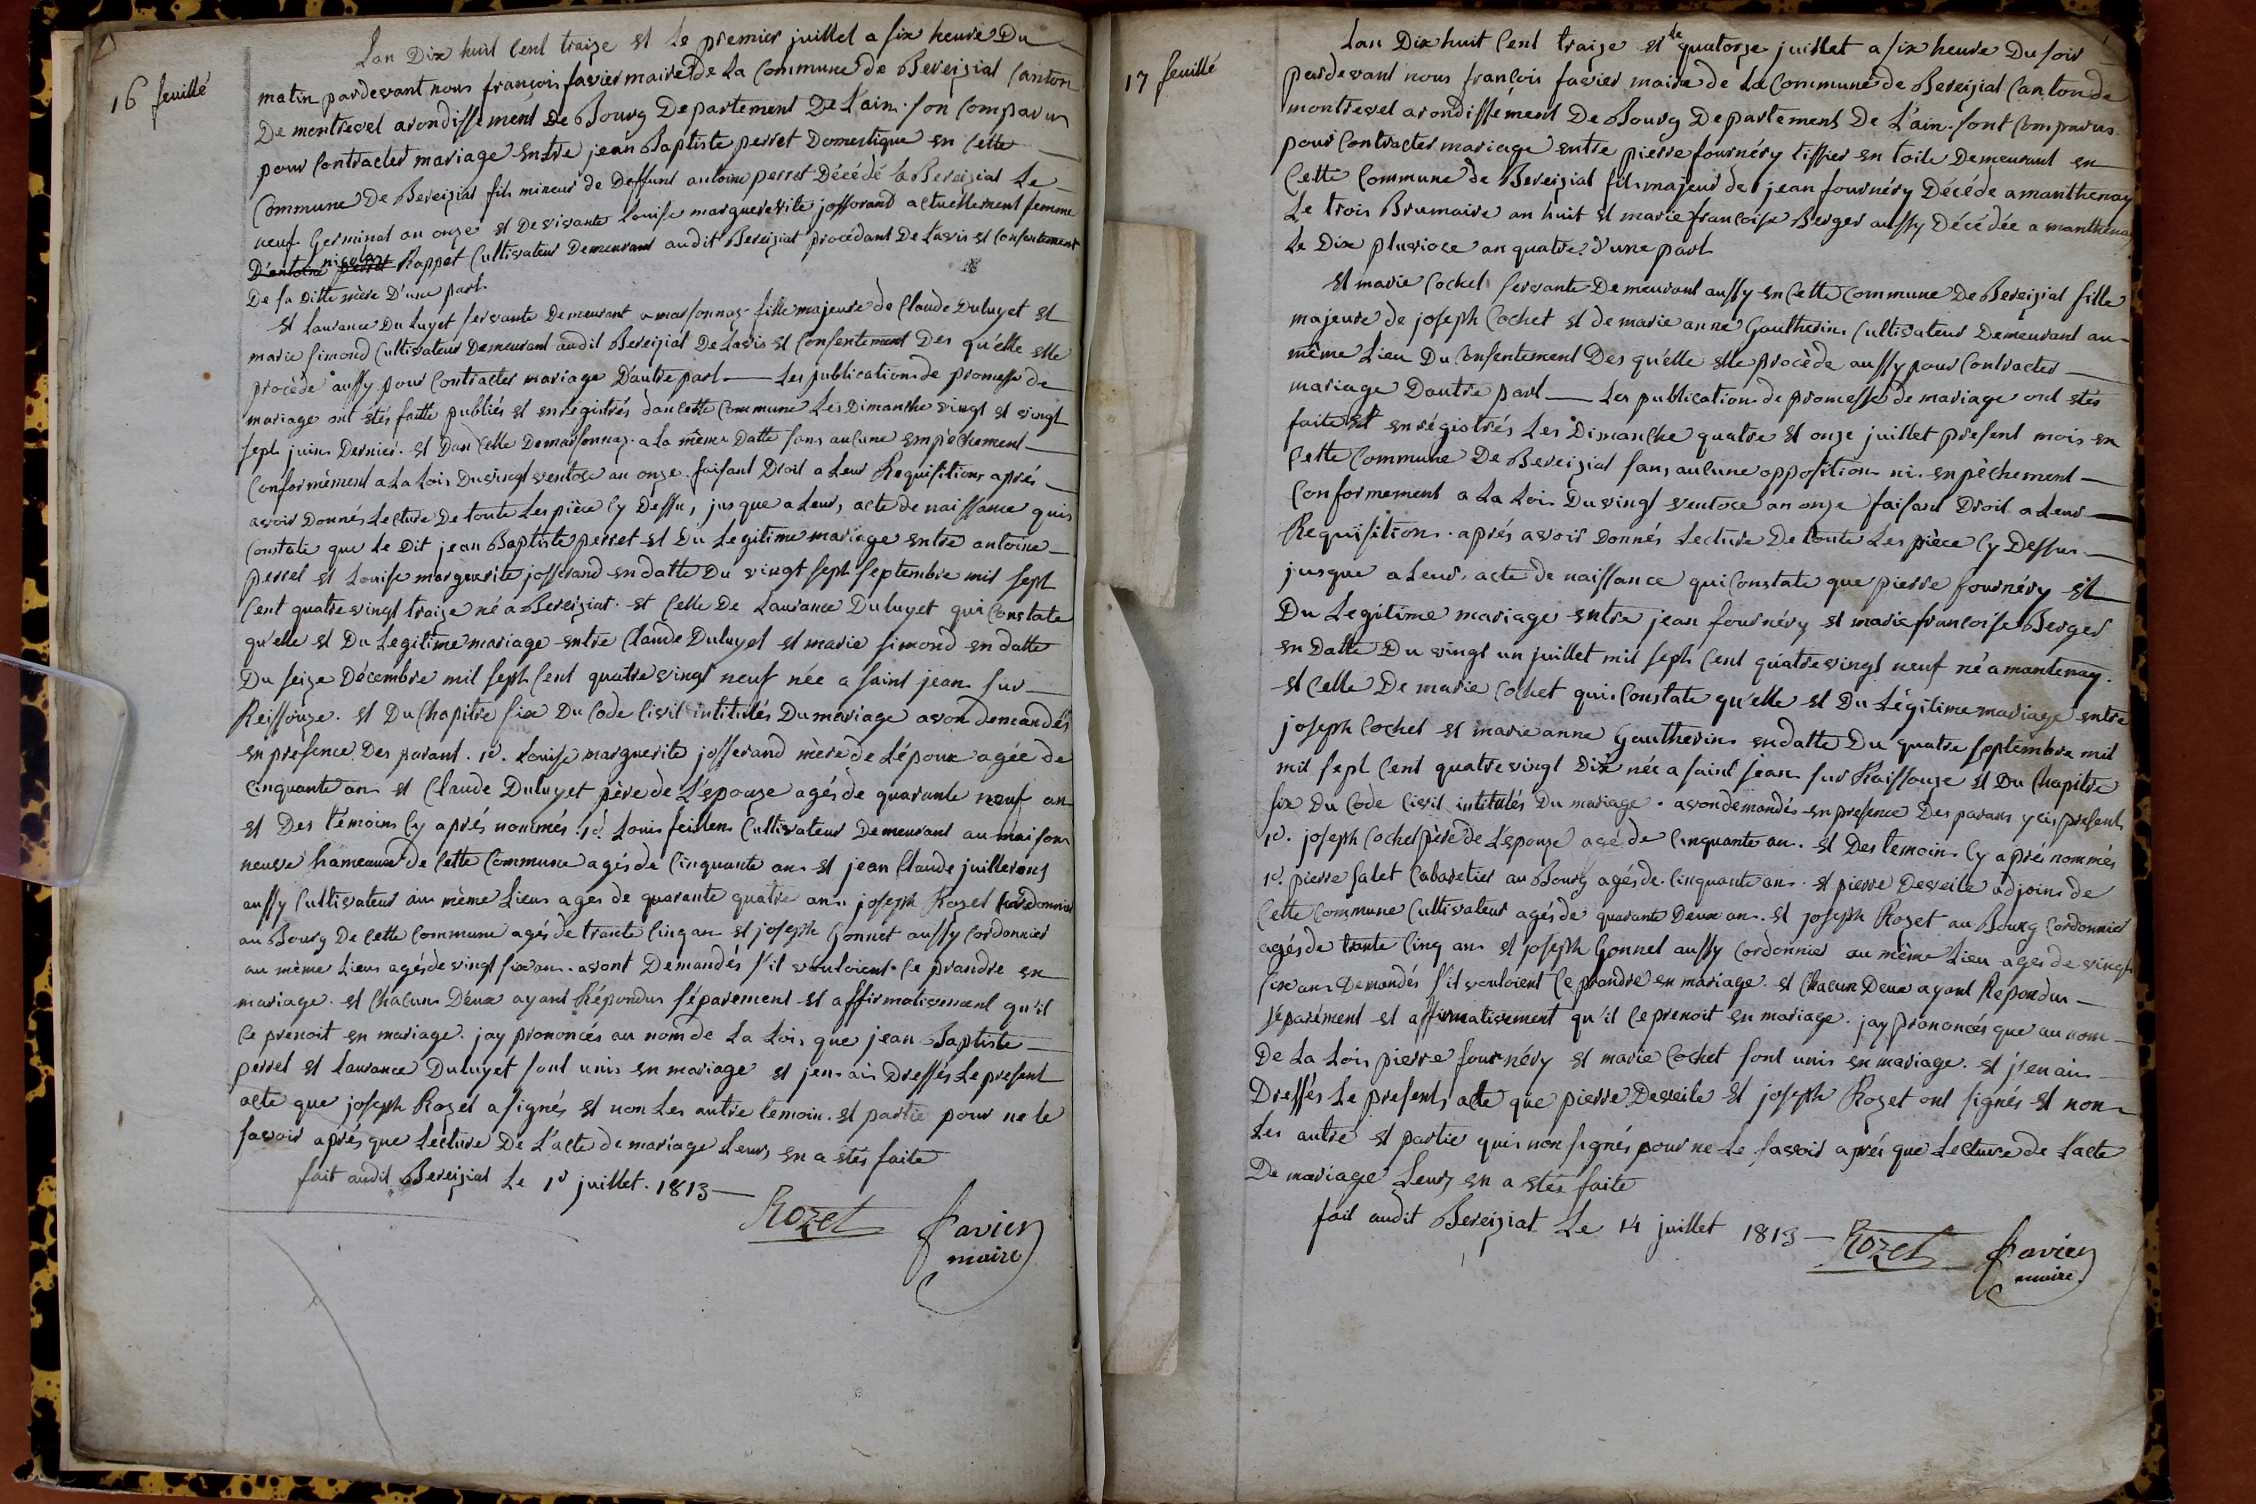 16 feuillé
Lan Dix huit Cent traize et Le premier juillet a six heure Du
matin pardevant nous françois favier maire De La Commune De Bereiziat Canton
De montrevel arondissement De Bourg Departement De L'ain. son Comparu
pour Contracter mariage entre jean Baptiste perret Domestique en Cette
Commune De Bereiziat fils mineur de Deffunt antoine perret Décédé à Bereiziat Le
neuf Germinal an onze et De vivante Louise marguerite josserand actuellement femme
D'antoine perret nicolas Rappet Cultivateur Demeurant audit Bereiziat procédant De Lavis et Consentement
De sa Ditte mère D'une part.
et Laurance Duluyet servante Demeurant a marsonnaz fille majeure de Claude Duluyet et
marie simond Cultivateur Demeurant audit Bereiziat De Lavis et Consentement Des qu'elle elle
procède aussy pour Contracter mariage D'autre part — Les publication de promesse de
mariage ont etés faitte publiés et enregistrés dan Cette Commune Les Dimanche vingt et vingt
sept juin Dernier. et Dan Celle De marsonnaz. a La même Datte sans aucune empêchement
Conformément a La Lois Du vingt ventose an onze. faisant Droit a Leur Requisition aprés
avoir Donnés Lecture De toute Les pièce Cy Dessus, jusque a Leur, acte de naissance qui
Constate que Le Dit jean Baptiste perret et Du Legitime mariage entre antoine
perret et Louise marguerite josserand en datte Du vingt sept septembre mil sept
Cent quatre vingt traize né a Bereiziat. et Celle De Laurance Duluyet qui Constate
qu'elle et Du Legitime mariage entre Claude Duluyet et marie simond en datte
Du seize Décembre mil sept Cent quatre vingt neuf née a saint jean sur
Reissouze. et Du Chapitre six Du Code Civil intitulés Du mariage avon demandés
en présence Des parant. 1d. Louise marguerite josserand mère de Lépoux agée de
Cinquante an et Claude Duluyet père de L'épouze agés de quarante neuf an
et Des témoins Cy aprés nommés. 1d. Louis feillen Cultivateur Demeurant au maison
neuve hameaux de Cette Commune agés de Cinquante an et jean Claude juilleron
aussy Cultivateur au même Lieu ages de quarante quatre an. joseph Rozet Cordonnier
au Bourg De Cette Commune agés de trante Cinq an et joseph Gonnet aussy Cordonnier
au même Lieu agés de vingt six an. avont Demandés s'il vouloient Ce prandre en
mariage. et Chacun D'eux ayant Répondu séparement et affirmativement qu'il
Ce prenoit en mariage. jay prononcés au nom de La Lois que jean Baptiste
perret et Laurance Duluyet sont unis en mariage et jen ais Dressés Le present
acte que joseph Rozet a signés et non Les autre temoin. et partie pour ne le
savoir aprés que Lecture De L'acte de mariage Leurs en a etés faite
fait audit Bereiziat Le 1d juillet. 1813 —
Rozet favier
maire
17 feuillé
Lan Dix huit Cent traize et le quatorze juillet a six heure Du soir
pardevant nous françois favier maire de La Commune de Bereiziat Canton de
montrevel arondissement De Bourg Departement De L'ain. sont Comparus
pour Contracter mariage entre pierre fournéry tissier en toile Demeurant en
Cette Commune de Bereiziat fils majeur de jean fournéry Décédé a manthenay
Le trois Brumaire an huit et marie francoise Berger aussy Décédée a manthenay
Le Dix pluviose an quatre. d'une part
et marie Cochet servante Demeurant aussy en Cette Commune De Bereiziat fille
majeure de joseph Cochet et de marie anne Gautherin Cultivateur Demeurant au
même Lieu Du Consentement Des qu'elle elle procède aussy pour Contracter
mariage Dautre part — Les publication de promesse de mariage ont etés
faite et enrégistrés Les Dimanche quatre et onze juillet present mois en
Cette Commune De Bereiziat sans aucune opposition ni enpèchement
Conformement a La Lois Du vingt ventose an onze faisant Droit a Leur
Requisition. aprés avoir Donnés Lecture De toute Les pièce Cy Dessus
jusque a Leur, acte de naissance qui Constate que pierre fournéry et
Du Legitime mariage entre jean fournéry et marie francoise Berger
en Datte Du vingt un juillet mil sept Cent quatre vingt neuf né a mantenay.
et Celle De marie Cochet qui Constate qu'elle et Du Légitime mariage entre
joseph Cochet et marie anne Gautherin en datte Du quatre septembre mil
mil sept Cent quatre vingt Dix née a saint jean sur Raissouze et Du Chapitre
six Du Code Civil intitulés Du mariage. avon demandés en presence Des parans ycis present
1d. joseph Cochet père de L'epouze agé de Cinquante an. et Des temoin Cy aprés nommés
1d. pierre salet Cabaretier au Bourg agés de Cinquante an. et pierre Deveile adjoins de
Cette Commune Cultivateur agés de quarante Deux an. et joseph Rozet au Bourg Cordonnier
agés de trante Cinq an et joseph Gonnet aussy Cordonnier au même Lieu ages de vingt
six an. Demandés s'il vouloient Ce prandre en mariage. et Chacun Deux ayant Repondu
séparément et affirmativement qu'il Ce prenoit en mariage. jay prononcés que au nom
De La Lois pierre fournéry et marie Cochet sont unis en mariage. et j'en ais
Dressés Le present acte que pierre Deveile et joseph Rozet ont signés et non
Les autre et partie qui non signés pour ne Le savoir aprés que Lecture de Lacte
De mariage Leurs en a etés faite
fait audit Bereiziat Le 14 juillet 1813 —
Rozet favier
maire